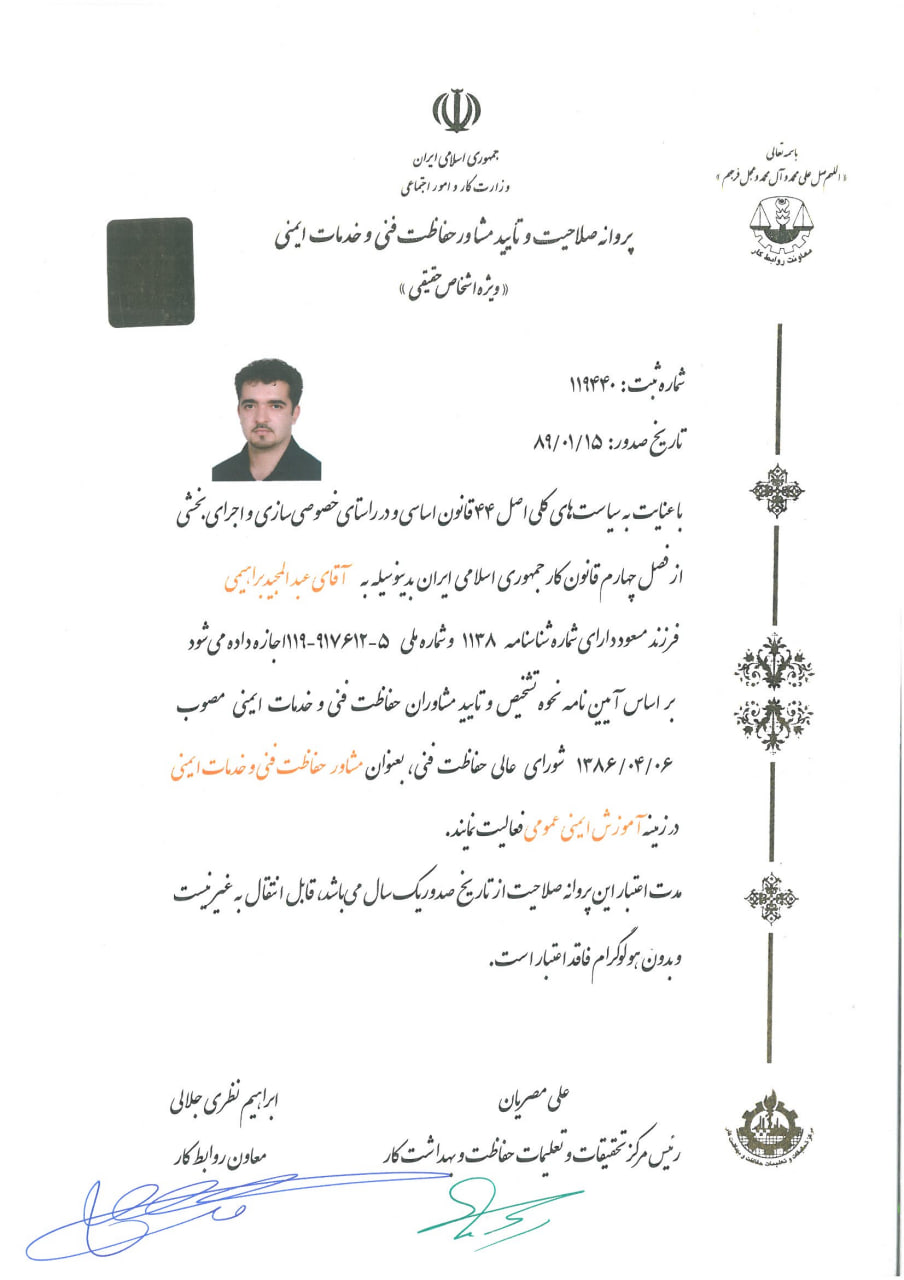 باسمه تعالی
«اللهم صل علی محمد و آل محمد و عجل فرجهم»
معاونت روابط کار
جمهوری اسلامی ایران
وزارت کار و امور اجتماعی
پروانه صلاحیت و تأیید مشاور حفاظت فنی و خدمات ایمنی
«ویژه اشخاص حقیقی»
شماره ثبت: ۱۱۹۴۴۰
تاریخ صدور: ۸۹/۰۱/۱۵
با عنایت به سیاست‌های کلی اصل ۴۴ قانون اساسی و در راستای خصوصی سازی و اجرای بخشی
از فصل چهارم قانون کار جمهوری اسلامی ایران بدینوسیله به آقای عبدالمجید براهیمی
فرزند مسعود دارای شماره شناسنامه ۱۱۳۸ و شماره ملی ۵-۹۱۷۶۱۲-۱۱۹ اجازه داده می‌شود
بر اساس آیین نامه نحوه تشخیص و تایید مشاوران حفاظت فنی و خدمات ایمنی مصوب
۱۳۸۶/۰۴/۰۶ شورای عالی حفاظت فنی، بعنوان مشاور حفاظت فنی و خدمات ایمنی
در زمینه آموزش ایمنی عمومی فعالیت نمایند.
مدت اعتبار این پروانه صلاحیت از تاریخ صدور یک سال می‌باشد، قابل انتقال به غیر نیست
و بدون هولوگرام فاقد اعتبار است.
علی مصریان
رئیس مرکز تحقیقات و تعلیمات حفاظت و بهداشت کار
ابراهیم نظری جلالی
معاون روابط کار
مرکز تحقیقات و تعلیمات حفاظت و بهداشت کار